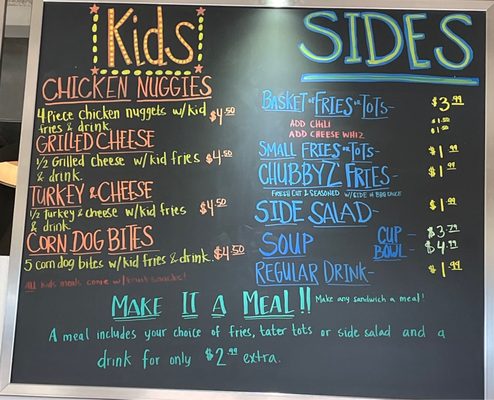 Kids
CHICKEN NUGGIES
4 Piece chicken nuggets w/kid $4.50
fries & drink.
GRILLED CHEESE
1/2 Grilled cheese w/kid fries $4.50
& drink.
TURKEY & CHEESE
1/2 turkey & cheese w/kid fries $4.50
& drink
CORN DOG BITES
5 corn dog bites w/kid fries & drink. $4.50
All kids meals come w/fruit snacks!
SIDES
BASKET OF FRIES OR TOTS- $3.99
ADD CHILI $1.50
ADD CHEESE WHIZ $1.50
SMALL FRIES OR TOTS- $1.99
CHUBBYZ FRIES- $1.99
FRESH CUT & SEASONED w/SIDE OF BBQ SAUCE
SIDE SALAD- $1.99
SOUP CUP- $3.29
BOWL- $4.79
REGULAR DRINK- $1.99
MAKE IT A MEAL!! Make any sandwich a meal!
A meal includes your choice of fries, tater tots or side salad and a
drink for only $2.99 extra.